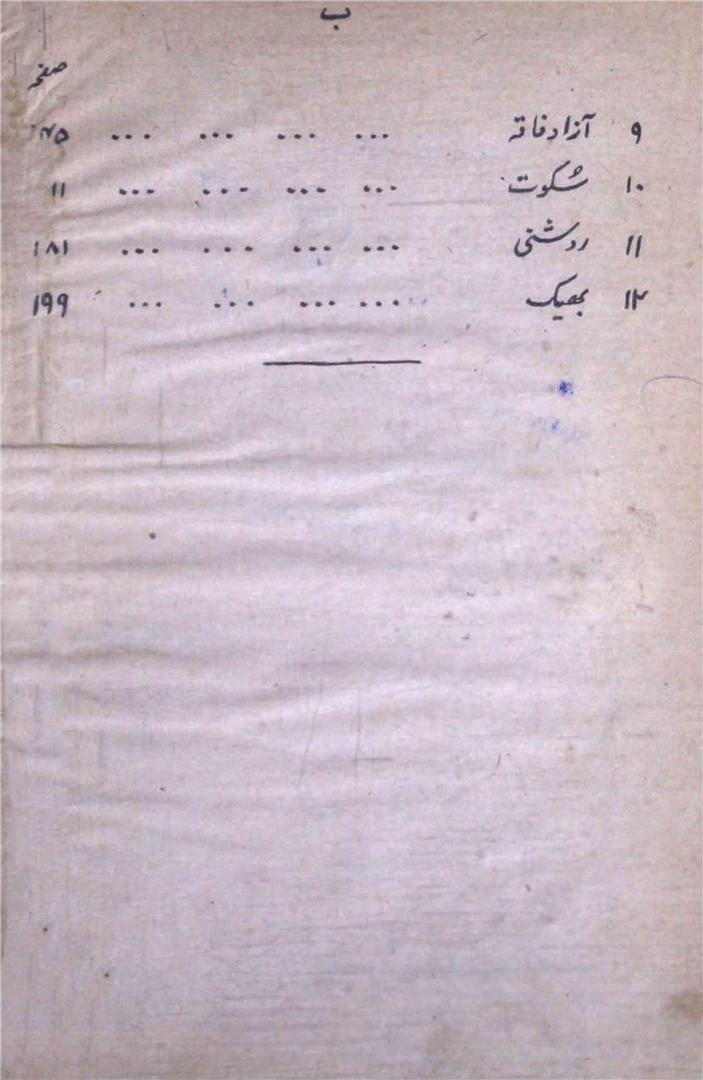 ب
صفحہ
۹ آزاد فاقہ ... ... ... ...
۱۰ سُکوت ... ... ... ... ۱۱
۱۱ روشنی ... ... ... ... ۱۸۱
۱۲ بھیک ... ... ... ... ۱۹۹